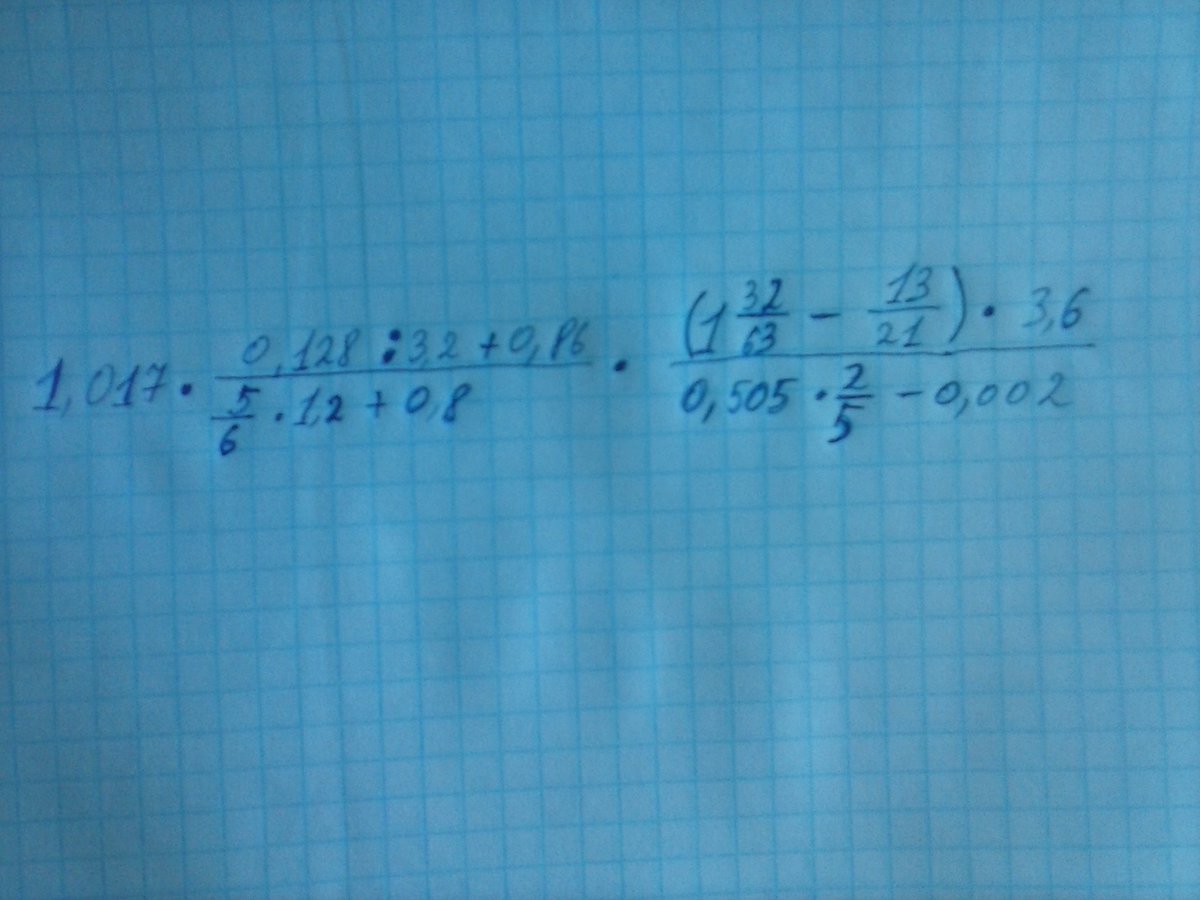 1,017 · (0,128 : 3,2 + 0,86)/(5/6 · 1,2 + 0,8) · ((1 32/63 − 13/21) · 3,6)/(0,505 · 2/5 − 0,002)